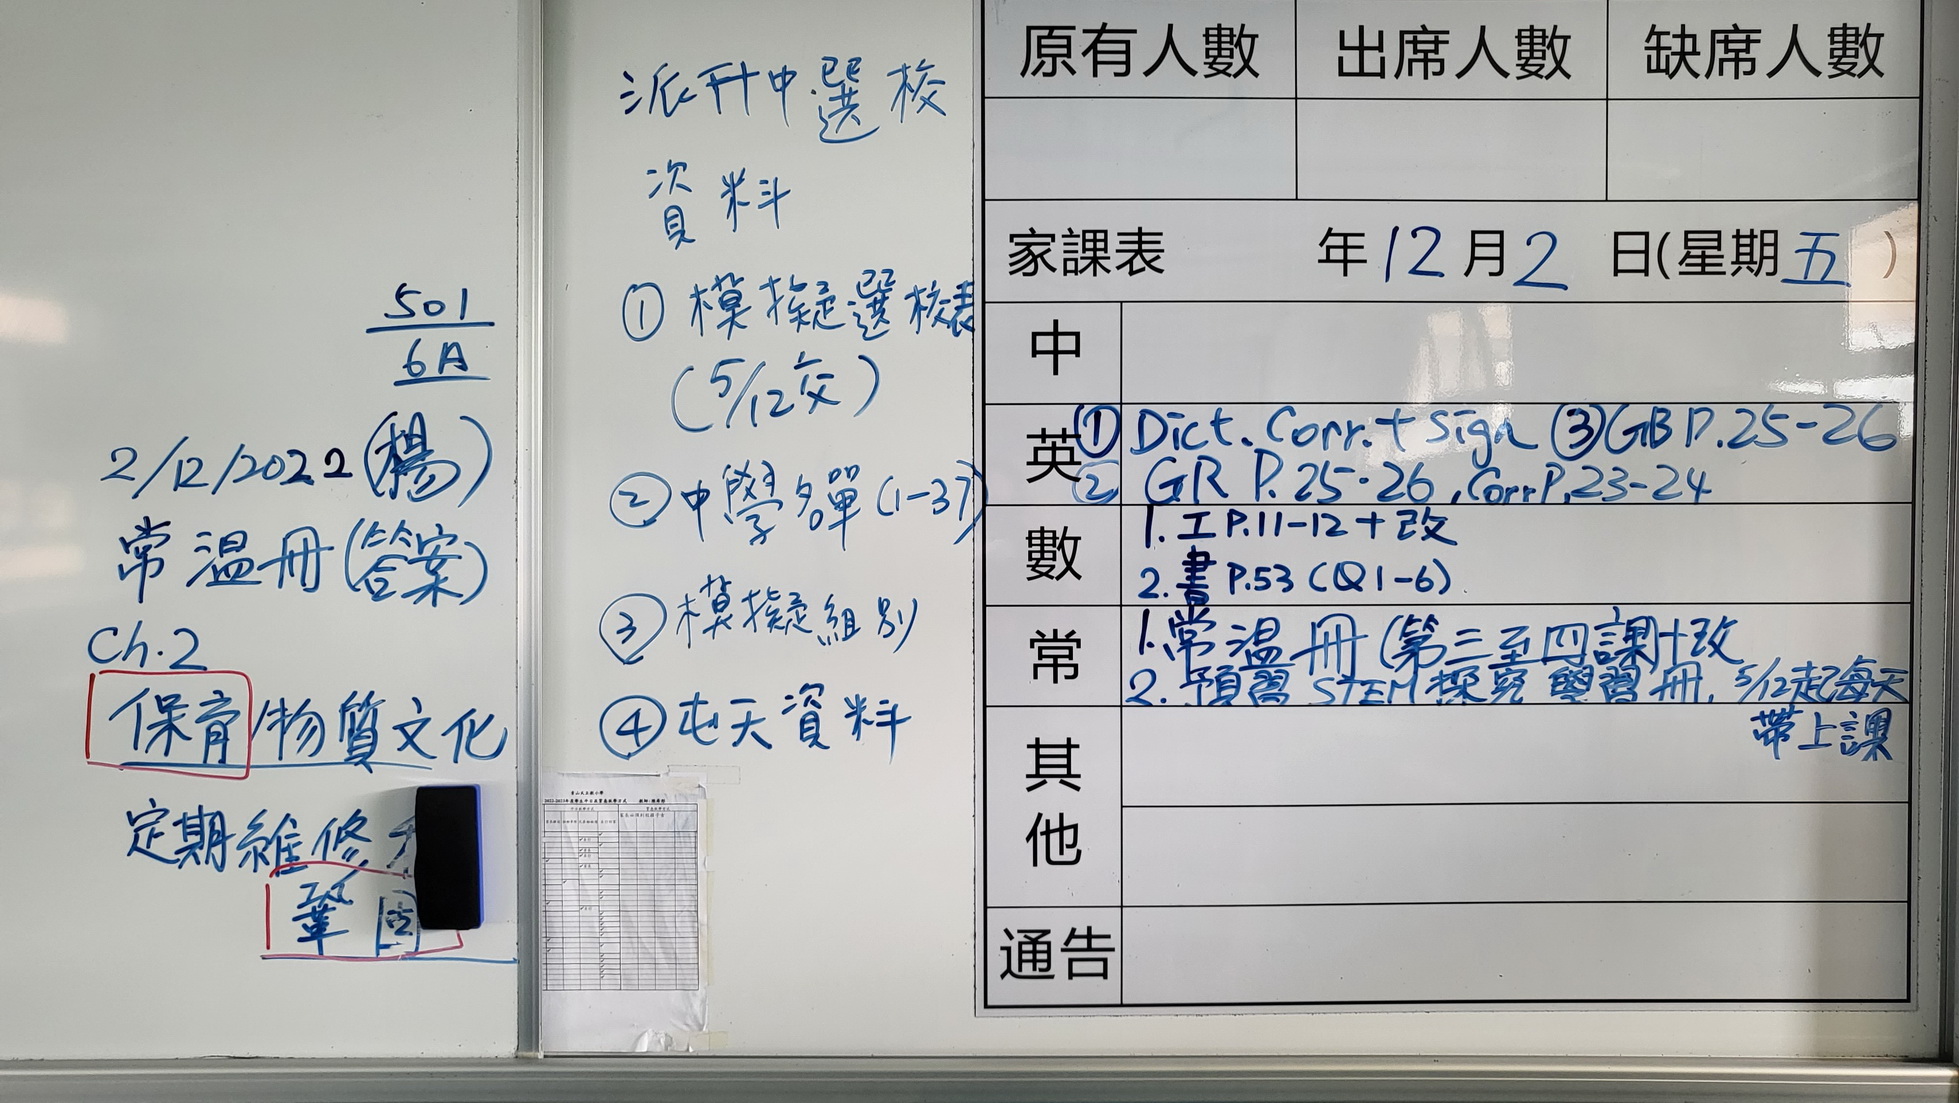 501
6A
2/12/2022(楊)
常溫冊(答案)
Ch.2
保育/物質文化
定期維修
鞏固
派升中選校
資料
① 模擬選校表
(5/12交)
② 中學名單(1-37)
③ 模擬組別
④ 屯天資料
原有人數 出席人數 缺席人數
家課表 年12月2日(星期五)
中
英 ① Dict. Corr. + Sign ③ GB P.25-26
② GR P.25-26, Corr P.23-24
數 1. 工P.11-12 + 改
2. 書 P.53 (Q1-6)
常 1. 常溫冊(第三至四課)+改
2. 預習STEM探究學習冊, 5/12起每天
帶上課
其他
通告